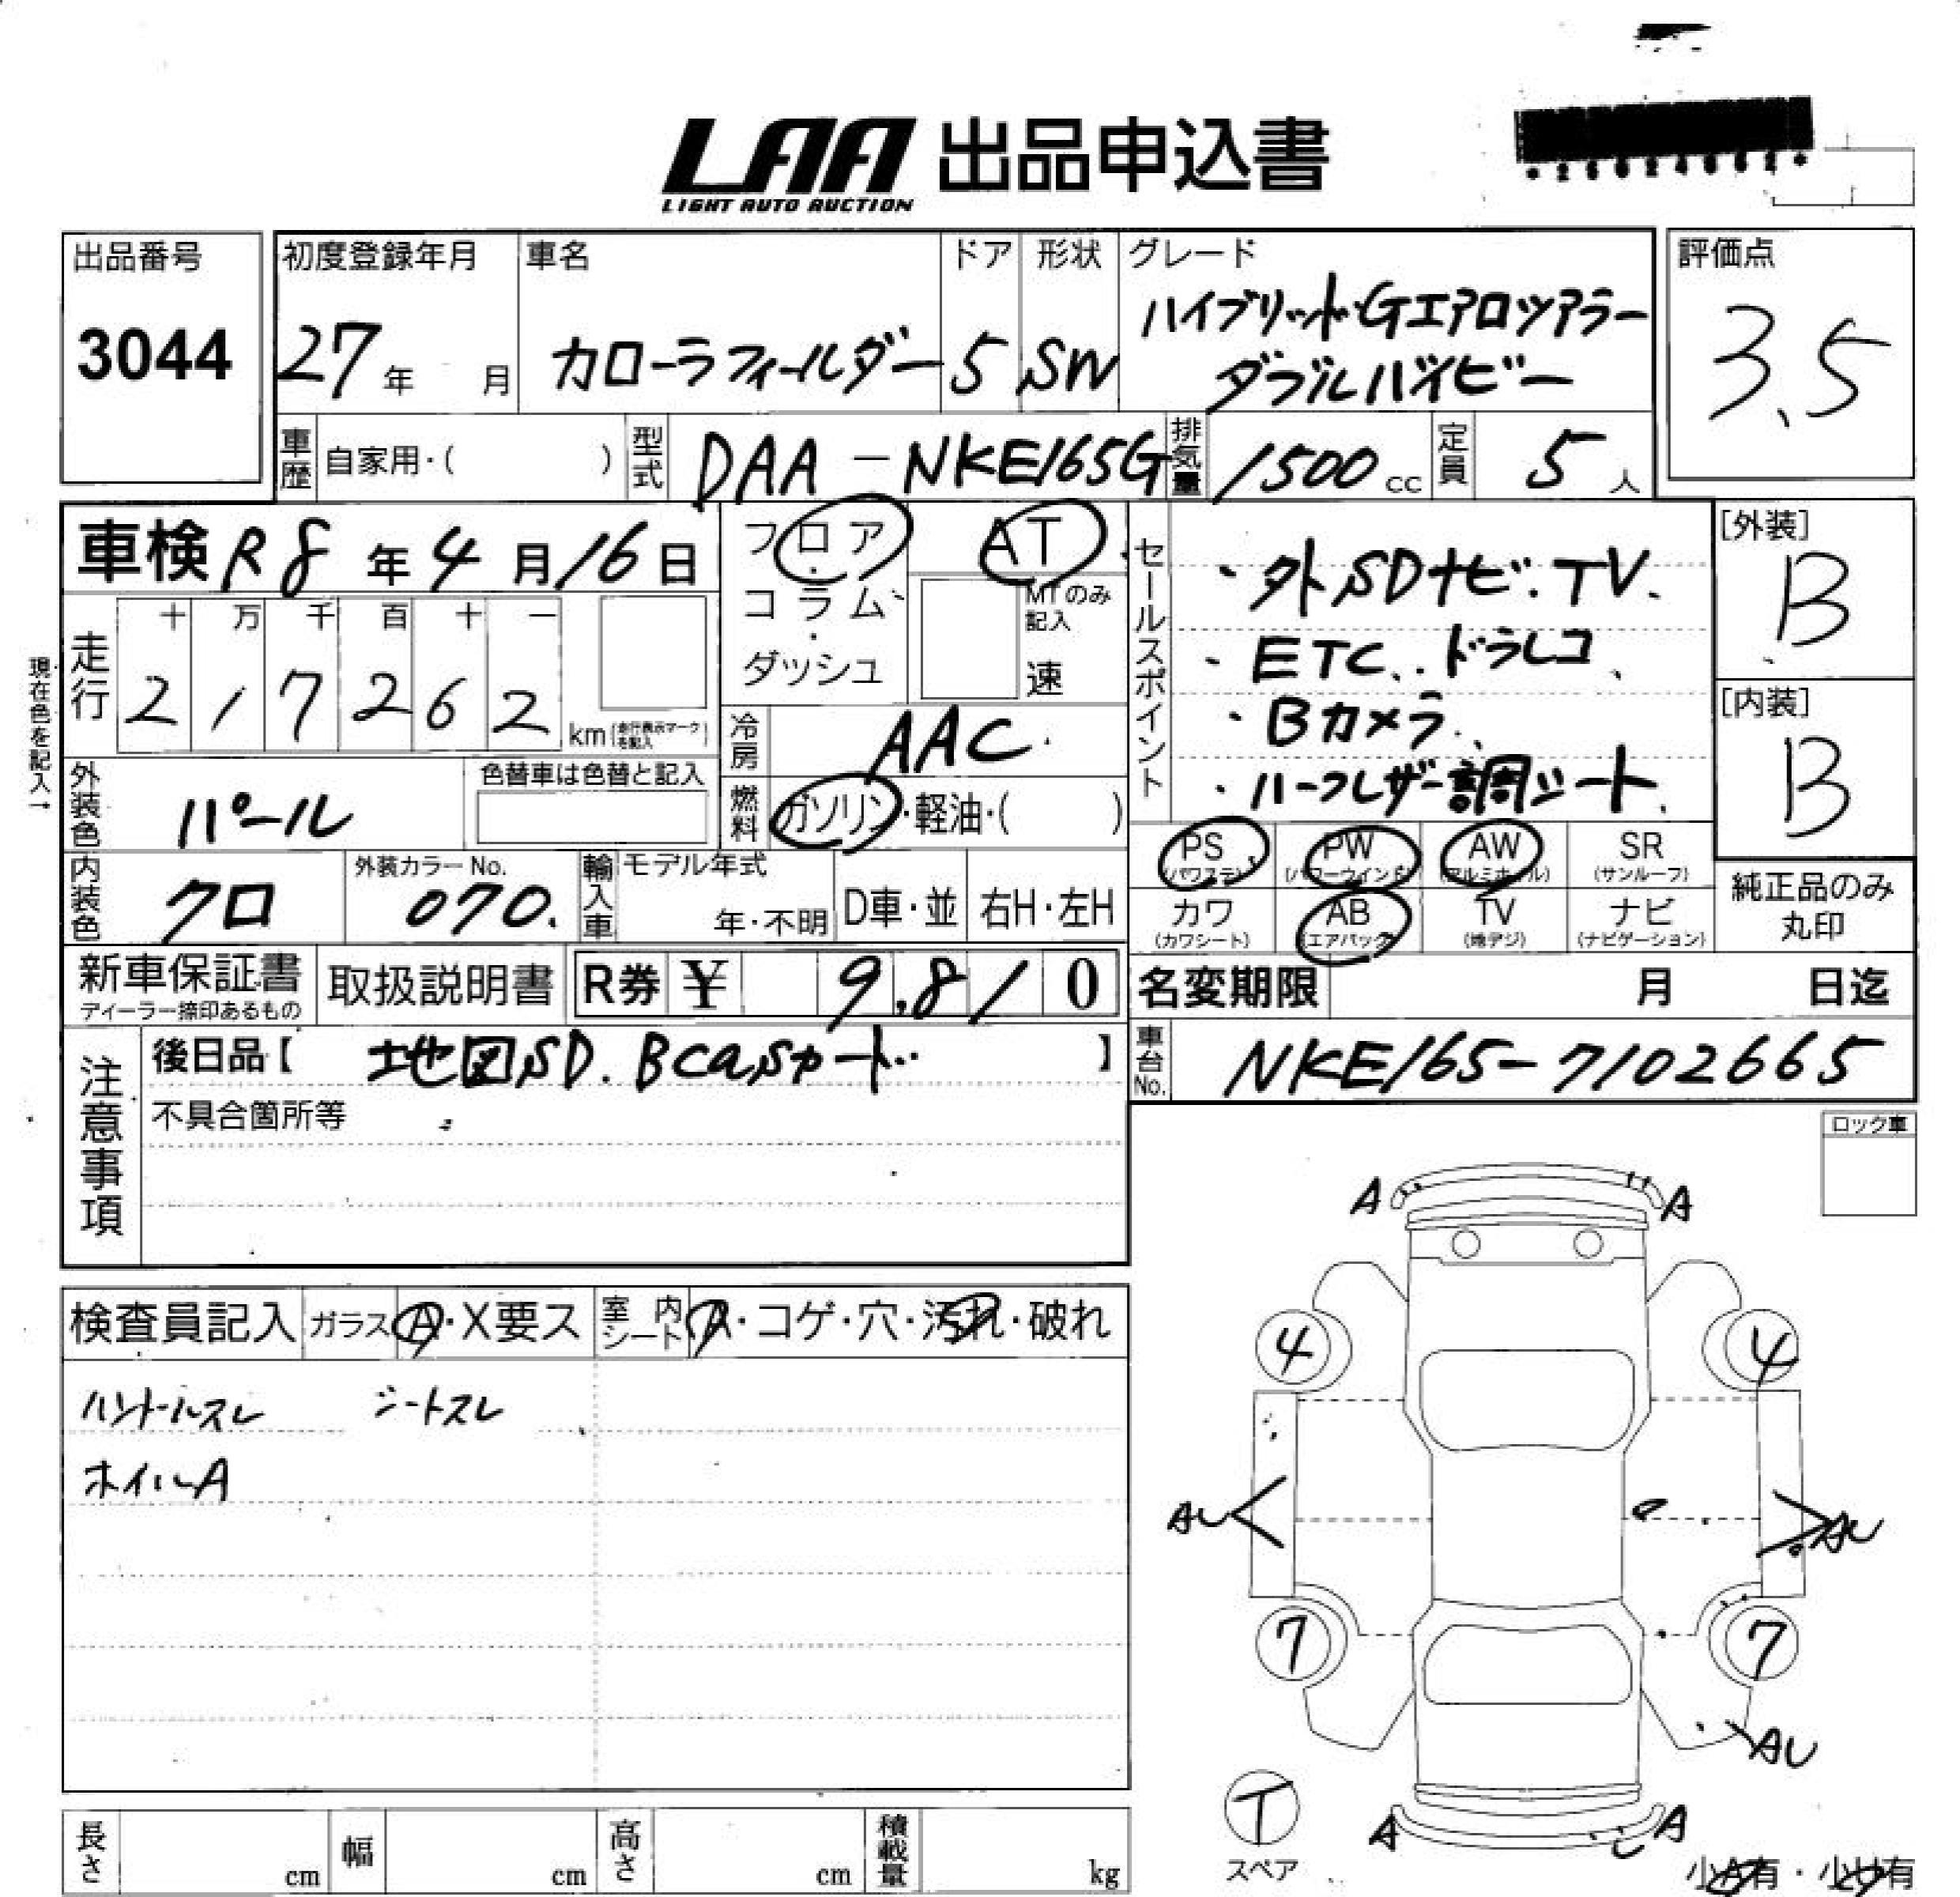 LAA 出品申込書
LIGHT AUTO AUCTION
出品番号
3044
初度登録年月
27年 月
車名
カローラフィールダー
ドア
5
形状
SW
グレード
ハイブリッドGエアロツアラー
ダブルバイビー
評価点
3.5
車歴 自家用・( )
型式 DAA-NKE165G
排気量 1500cc
定員 5人
車検 R8年4月16日
フロア・コラム・ダッシュ
AT
MTのみ記入
速
セールスポイント
・外SDナビ.TV.
・ETC..ドラレコ、
・Bカメラ.
・ハーフレザー調シート.
[外装]
B
[内装]
B
現在色を記入→
走行
十 万 千 百 十 一
2 1 7 2 6 2 km(走行表示マークを記入)
冷房 AAC.
燃料 ガソリン・軽油・( )
外装色 パール
色替車は色替と記入
内装色 クロ
外装カラーNo.
070.
輸入車
モデル年式
年・不明
D車・並
右H・左H
PS (パワステ)
PW (パワーウインド)
AW (アルミホイル)
SR (サンルーフ)
カワ (カワシート)
AB (エアバック)
TV (地デジ)
ナビ (ナビゲーション)
純正品のみ
丸印
新車保証書
ディーラー捺印あるもの
取扱説明書
R券 ¥ 9,810
名変期限 月 日迄
注意事項
後日品【 地図SD.Bcasカード 】
不具合箇所等
車台No. NKE165-7102665
ロック車
検査員記入
ガラス A・X要ス
室内シート A・コゲ・穴・汚れ・破れ
ハンドルスレ シートスレ
ホイルA
A A
4 4
AU AU
7 7
AU
T
スペア
A A
小A有・小U有
長さ cm
幅 cm
高さ cm
積載量 kg